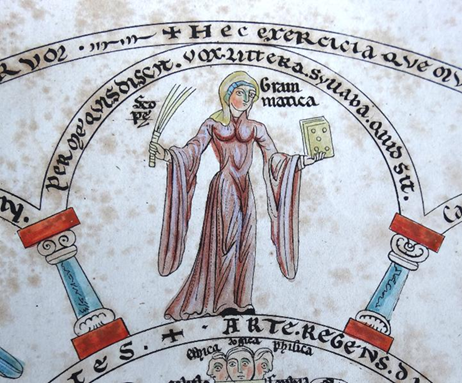 + Hec exercicia que
Per me quivis discit. vox. littera. syllaba. quid sit.
Sco
pe
Gram
matica
+ . ARTE. REGENS.
ethica logica phisica